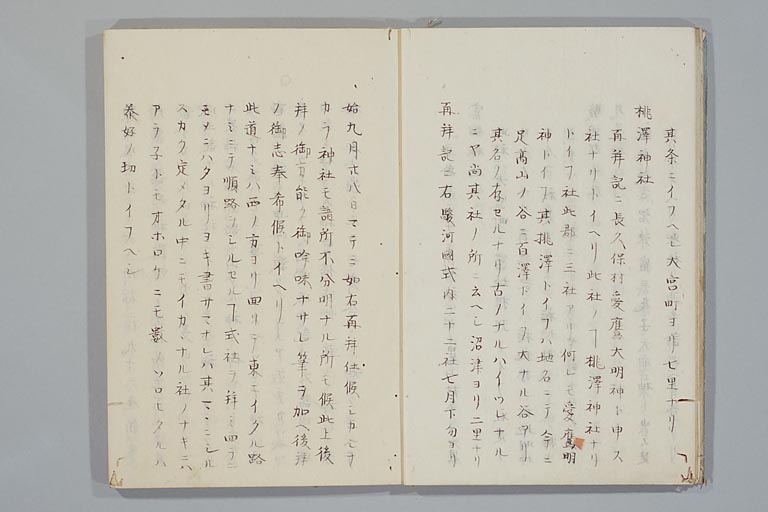 其条ニイフヘシ大宮町ヨリ七里ナリ
桃澤神社
再拜記ニ長久保村愛鷹大明神ト申ス
社ナリトイヘリ此社ノ丁桃澤神社ナリ
トイフ社此郡ニ三社アリ何レモ愛鷹明
神トイフ其桃澤トイフハ地名ニテ今ニ
足高山ノ谷ニ百澤トイフ大ナル谷アリ
其名ノ存セルナリ古ノナルハイツレナル
ニヤ尚其社ノ所ニ云ヘシ沼津ヨリ二里ナリ
再拜記ニ右駿河國式内二十二社七月下旬ヨリ
始九月廿八日マテニ如右再拜仕候シカモテ
カラ神社モ諸所不分明ナル所モ候此上後
拜ノ御方能々御吟味ナサレ筆ヲ加ヘ後拜
ノ御志奉希候トイヘリ
此道ナミハ西ノ方ヨリ回リテ東ニイタル路
ナミニテ順路ヲシルセル丁式社ヲ拜ミ四ラン
モメニハタヨリヨキ書サマナレハ其マヽニシル
スカク定メタル中ニテイカミナル社ノナキニハ
アラ子トモオホロケニモ數ノソロヒタルハ
泰好ノ功トイフヘシ